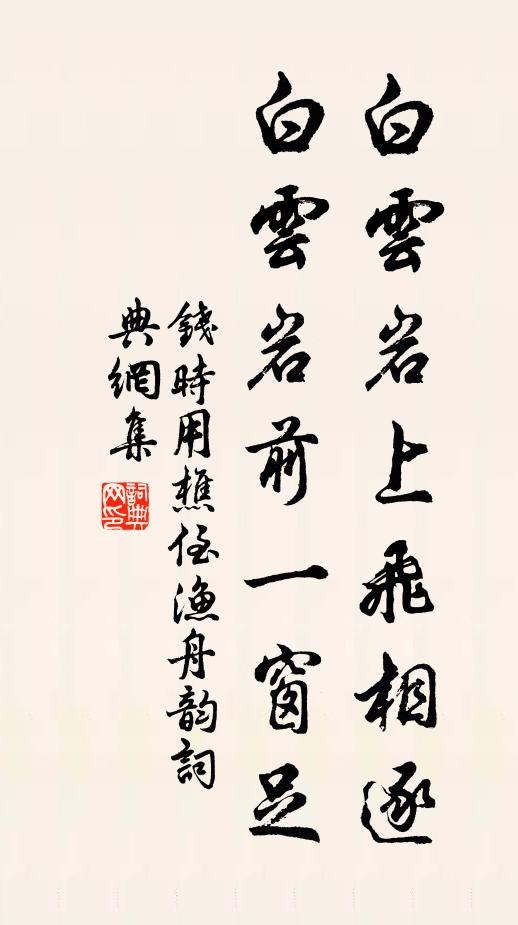 白雲岩上飛相逐
白雲岩前一窗足
錢時用樵侄漁舟韵詞
典網集
詞典
网印